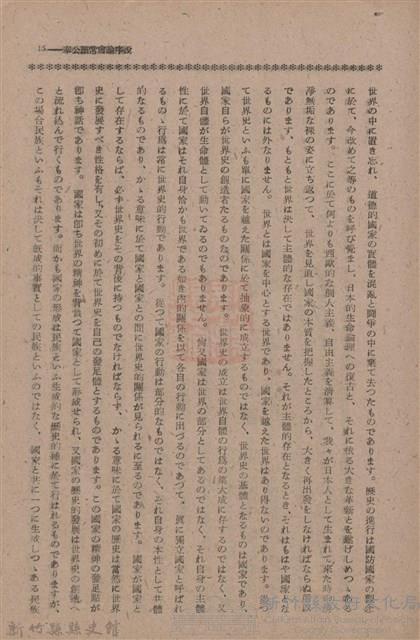 15——奉公會常會論序説
世界の中に置き忘れ、道徳的國家の實體を混亂と鬪爭の中に棄て去つたものであります。歷史の進行は國防國家の
に於て、今改めて之等のものを呼び覺まし、日本的生命論理への復古と、それに依る大きな革新とを遂げしめつつある
のであります。ここに於て何よりも西歐的な個人主義、自由主義を淸算して、我々が日本人として生まれて來た時の
淨無垢な裸の姿に立ち返つて、世界を見直し國家の本質を把握したところから、大きく再出發をしなければならぬ
であります。もともと世界は決して主體的な存在ではありません。それが主體的存在となるとき、それはもはや國家な
るものには外なりません。世界とは國家を中心とする世界であり、國家を越えた世界はあり得ないのであります。
て世界史といふも單に國家を越えた關係に於て抽象的に成立するものではなく、世界史の基體となるものは國家であり、
國家自らが世界史の創造者たるものなのであります。世界史の成立は世界自體の行爲の集大成に存するのではなく、又
世界自體が生命體として動いてゐるのでもありません。尙又國家は世界の部分としてあるのではなく、それ自身の主體
性に於て國家はそれ自身恰かも世界である如き內的關係を以て各自の行動に出づるのであつて、眞に獨立國家と呼ばれ
るもの、行爲は常に世界史的行動であります。從つて國家の行動は部分的なものではなく、それ自身の本性として世界
的なるものであり、かゝる意味に於て國家と國家との間に世界史的關係が見られるに至るのであります。國家が國家と
して存在するならば、必ず世界史をその背後に持つものでなければならず、かゝる意味に於て國家の歷史は當然に世界
史に發展すべき性格を有し、又その初めに於て世界史を自己の發足體とするものであります。この國家の精神の發足點が
卽ち神話であります。國家は卽ち世界の精神を背負つて國家として形成せられ、又國家の歷史的發展は世界史の創造へ
と流れ込んで行くものであります。而かも國家の形成は民族といふ生成的な歷史的種に於て行はれるものでありますが、
この場合民族といふもそれは決して旣成的事實としての民族といふのではなく、國家と共に一つに生成しつゝある民族
新竹縣縣史館
新竹縣政府文化局